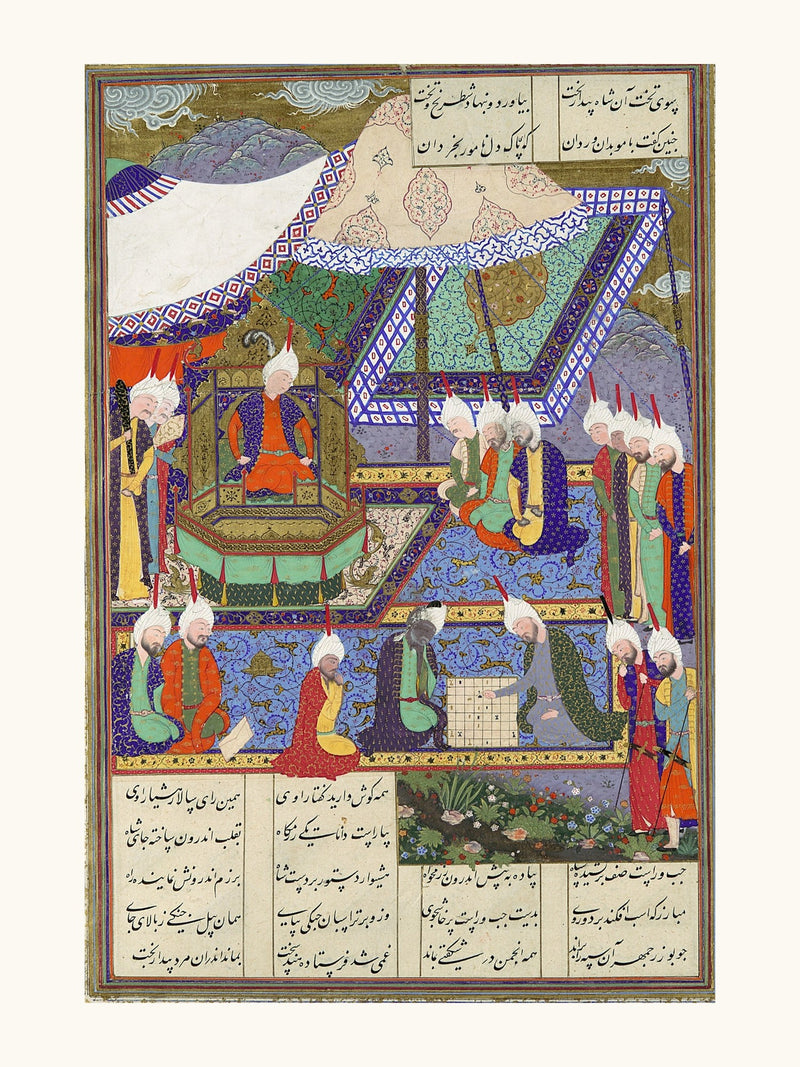 بسوی تخت آن شاه بیدار بخت بیاورد و بنهاد شطرنج و تخت
چنین گفت با موبدان و ردان که ای پاک دل نامور بخردان
همه گوش دارید گفتار اوی همین رای سالار هشیار اوی
بیاراست دانا یکی رزمگاه بقلب اندرون ساخته جای شاه
چپ و راست صف برکشیده سپاه پیاده به پیش اندرون رزمخواه هشیوار دستور بر دست شاه برزم اندرونش نماینده راه
مبارز که اسب افکند بر دو روی بدست چپ و راست پرخاشجوی وزو برتر اسبان جنگی بپای همان پیل جنگی ز بالای جای
چو بوزرجمهر آن سپه را براند همه انجمن در شگفتی بماند غمی شد فرستاده هند سخت بماند اندران مرد بیدار بخت